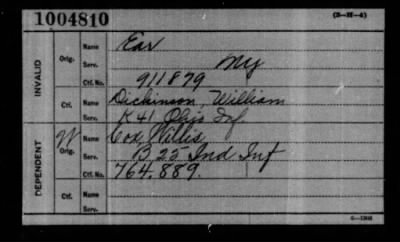 1004810
(3-H-4)
INVALID
Orig.
Name
Ear
Serv.
Ctf. No.
911879
Ctf.
Name
Dickinson, William
Serv.
K 41 Ohio Inf.
DEPENDENT
W
Orig.
Name
Cox, Willis
Serv.
B. 25 Ind Inf
Ctf. No.
764.889.
Ctf.
Name
Serv.